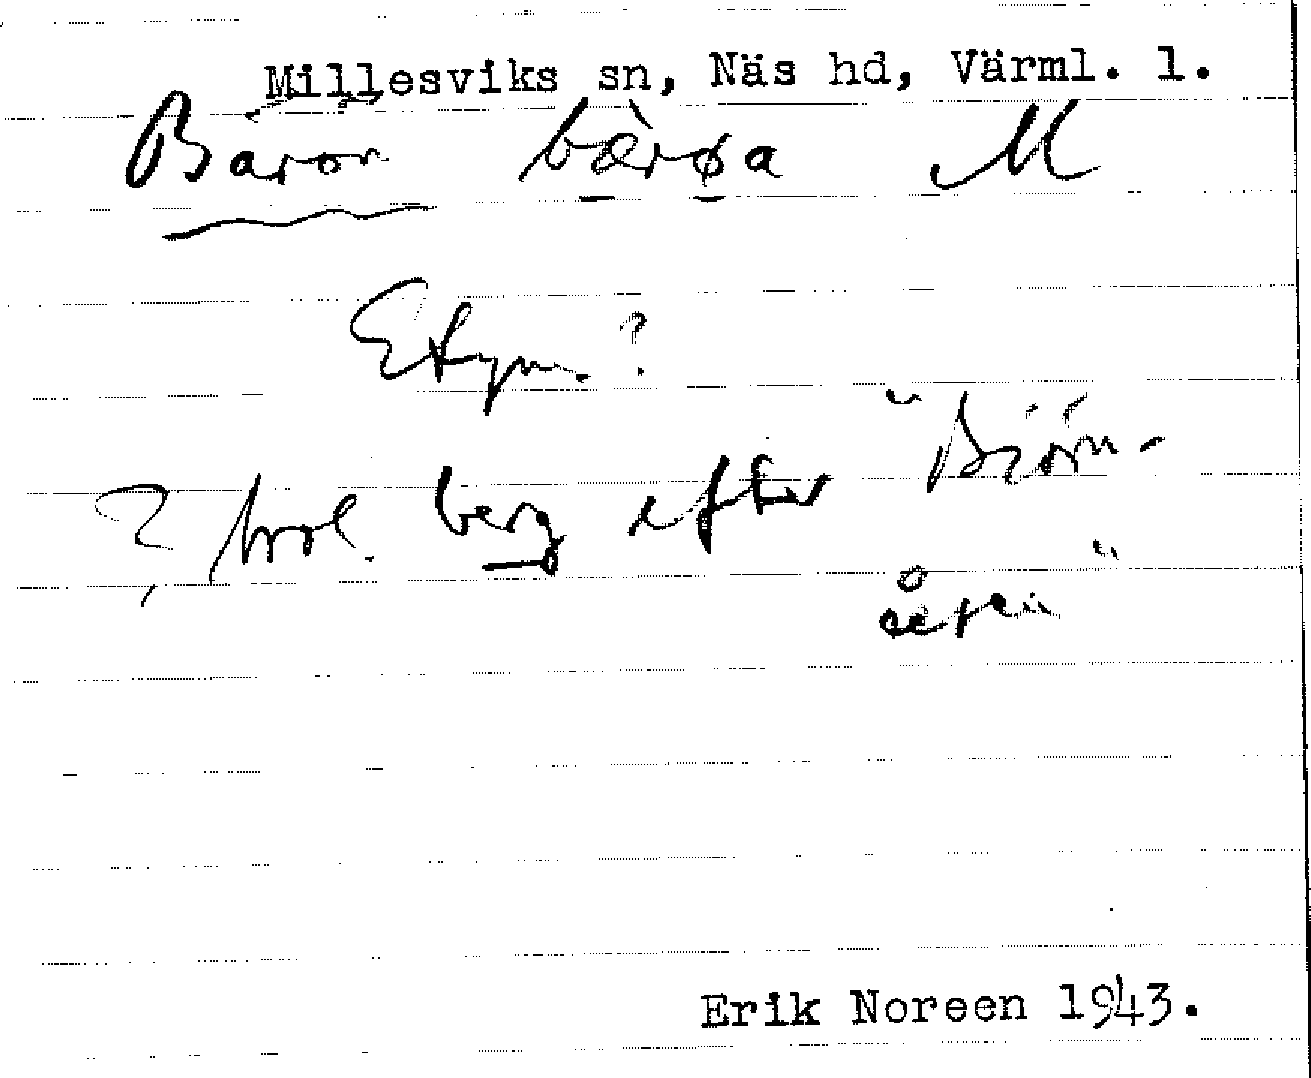 Millesviks sn, Näs hd, Värml. l.
Bärön bærøa M
Etym. ?
? trol. berg efter "Björn-
åsen"
Erik Noreen 1943.